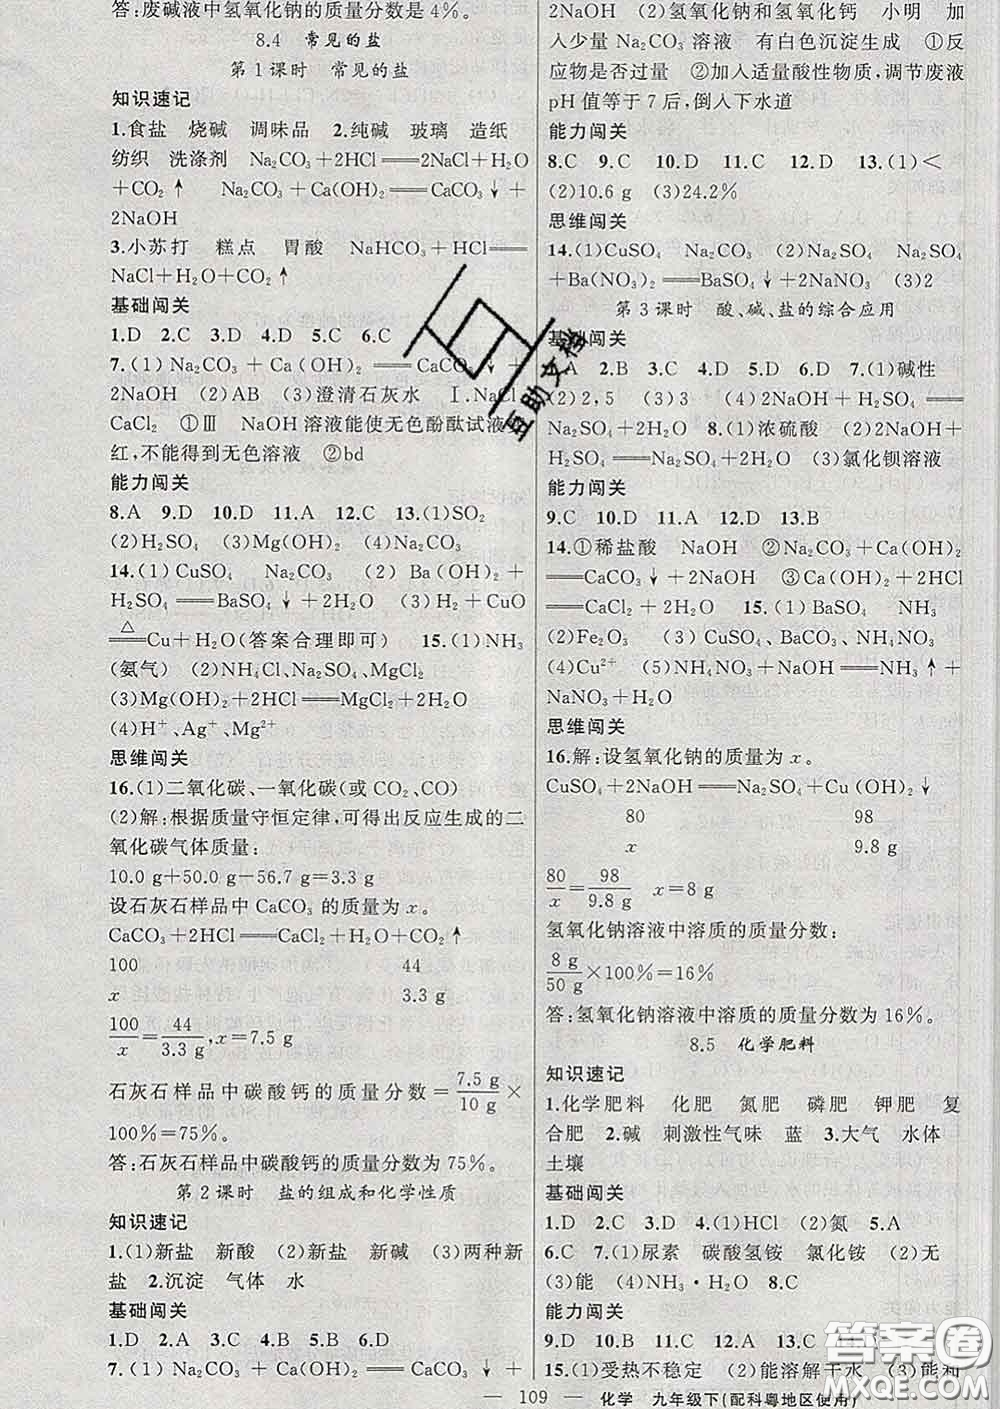 答:废碱液中氢氧化钠的质量分数是4%。
8.4 常见的盐
第1课时 常见的盐
知识速记
1.食盐 烧碱 调味品 2.纯碱 玻璃 造纸
纺织 洗涤剂 Na₂CO₃+2HCl══2NaCl+H₂O
+CO₂↑ Na₂CO₃+Ca(OH)₂══CaCO₃↓+
2NaOH
3.小苏打 糕点 胃酸 NaHCO₃+HCl══
NaCl+H₂O+CO₂↑
基础闯关
1.D 2.C 3.D 4.D 5.C 6.C
7.(1)Na₂CO₃+Ca(OH)₂══CaCO₃↓+
2NaOH (2)AB (3)澄清石灰水 Ⅰ.NaCl、
CaCl₂ ①Ⅲ NaOH溶液能使无色酚酞试液变
红,不能得到无色溶液 ②bd
能力闯关
8.A 9.D 10.D 11.A 12.C 13.(1)SO₂
(2)H₂SO₄ (3)Mg(OH)₂ (4)Na₂CO₃
14.(1)CuSO₄ Na₂CO₃ (2)Ba(OH)₂+
H₂SO₄══BaSO₄↓+2H₂O (3)H₂+CuO
△══Cu+H₂O(答案合理即可) 15.(1)NH₃
(氨气) (2)NH₄Cl、Na₂SO₄、MgCl₂
(3)Mg(OH)₂+2HCl══MgCl₂+2H₂O
(4)H⁺、Ag⁺、Mg²⁺
思维闯关
16.(1)二氧化碳、一氧化碳(或CO₂、CO)
(2)解:根据质量守恒定律,可得出反应生成的二
氧化碳气体质量:
10.0 g+50.0 g-56.7 g=3.3 g
设石灰石样品中CaCO₃的质量为x。
CaCO₃+2HCl══CaCl₂+H₂O+CO₂↑
100 44
x 3.3 g
100/x=44/3.3 g,x=7.5 g
石灰石样品中碳酸钙的质量分数=7.5 g/10 g×
100%=75%。
答:石灰石样品中碳酸钙的质量分数为75%。
第2课时 盐的组成和化学性质
知识速记
1.(1)新盐 新酸 (2)新盐 新碱 (3)两种新
盐 2.沉淀 气体 水
基础闯关
1.D 2.A 3.C 4.B 5.B 6.D
7.(1)Na₂CO₃+Ca(OH)₂══CaCO₃↓+
2NaOH (2)氢氧化钠和氢氧化钙 小明 加
入少量Na₂CO₃溶液 有白色沉淀生成 ①反
应物是否过量 ②加入适量酸性物质,调节废液
pH值等于7后,倒入下水道
能力闯关
8.C 9.C 10.D 11.C 12.D 13.(1)<
(2)10.6 g (3)24.2%
思维闯关
14.(1)CuSO₄ Na₂CO₃ (2)Na₂SO₄ Na₂SO₄
+Ba(NO₃)₂══BaSO₄↓+2NaNO₃ (3)2
第3课时 酸、碱、盐的综合应用
基础闯关
1.A 2.B 3.C 4.D 5.D 6.D 7.(1)碱性
(2)2,5 (3)3 (4)2NaOH+H₂SO₄══
Na₂SO₄+2H₂O 8.(1)浓硫酸 (2)2NaOH+
H₂SO₄══Na₂SO₄+2H₂O (3)氯化钡溶液
能力闯关
9.C 10.D 11.A 12.D 13.B
14.①稀盐酸 NaOH ②Na₂CO₃+Ca(OH)₂
══CaCO₃↓+2NaOH ③Ca(OH)₂+2HCl
══CaCl₂+2H₂O 15.(1)BaSO₄ NH₃
(2)Fe₂O₃ (3)CuSO₄、BaCO₃、NH₄NO₃
(4)Cu²⁺ (5)NH₄NO₃+NaOH══NH₃↑+
NaNO₃+H₂O
思维闯关
16.解:设氢氧化钠的质量为x。
CuSO₄+2NaOH══Na₂SO₄+Cu(OH)₂↓
80 98
x 9.8 g
80/x=98/9.8 g x=8 g
氢氧化钠溶液中溶质的质量分数:
8 g/50 g×100%=16%
答:氢氧化钠溶液中溶质的质量分数为16%。
8.5 化学肥料
知识速记
1.化学肥料 化肥 氮肥 磷肥 钾肥 复
合肥 2.碱 刺激性气味 蓝 3.大气 水体
土壤
基础闯关
1.D 2.C 3.D 4.(1)HCl (2)氮 5.A
6.C 7.(1)尿素 碳酸氢铵 氯化铵 (2)无
(3)能 (4)NH₃·H₂O 8.C
能力闯关
9.D 10.B 11.C 12.A 13.C 14.
15.(1)受热不稳定 (2)能溶解于水 (3)能和
— 109 — 化学 九年级下(配科粤地区使用)
百
互助文档
答案圈
MXQE.COM